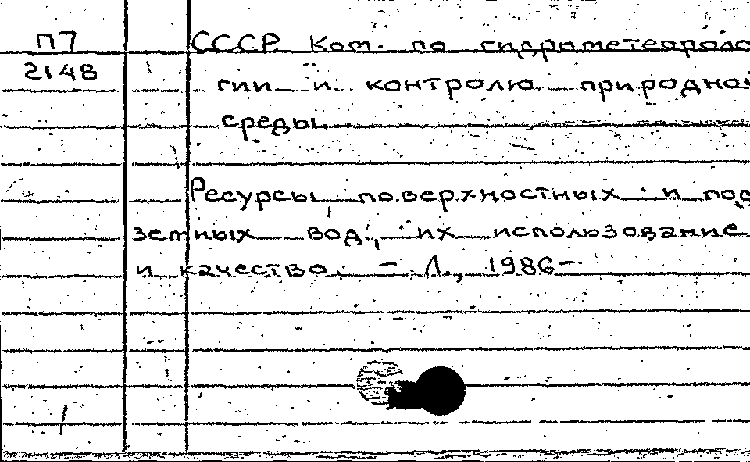 П7
2148
СССР Ком. по гидрометеороло
гии и контролю природной
среды.
Ресурсы поверхностных и под
земных вод, их использование
и качество. – Л., 1986–